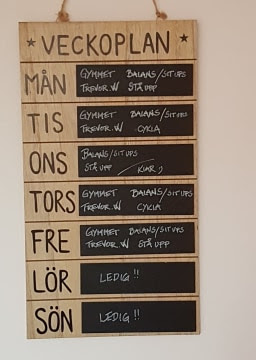 ★ VECKOPLAN ★
MÅN
GYMMET BALANS/SITUPS
TREVOR.W STÅ UPP
TIS
GYMMET BALANS/SITUPS
TREVOR.W CYKLA
ONS
BALANS/SITUPS
STÅ UPP / KLAR ;)
TORS
GYMMET BALANS/SITUPS
TREVOR.W CYKLA
FRE
GYMMET BALANS/SITUPS
TREVOR.W STÅ UPP
LÖR
LEDIG !!
SÖN
LEDIG !!